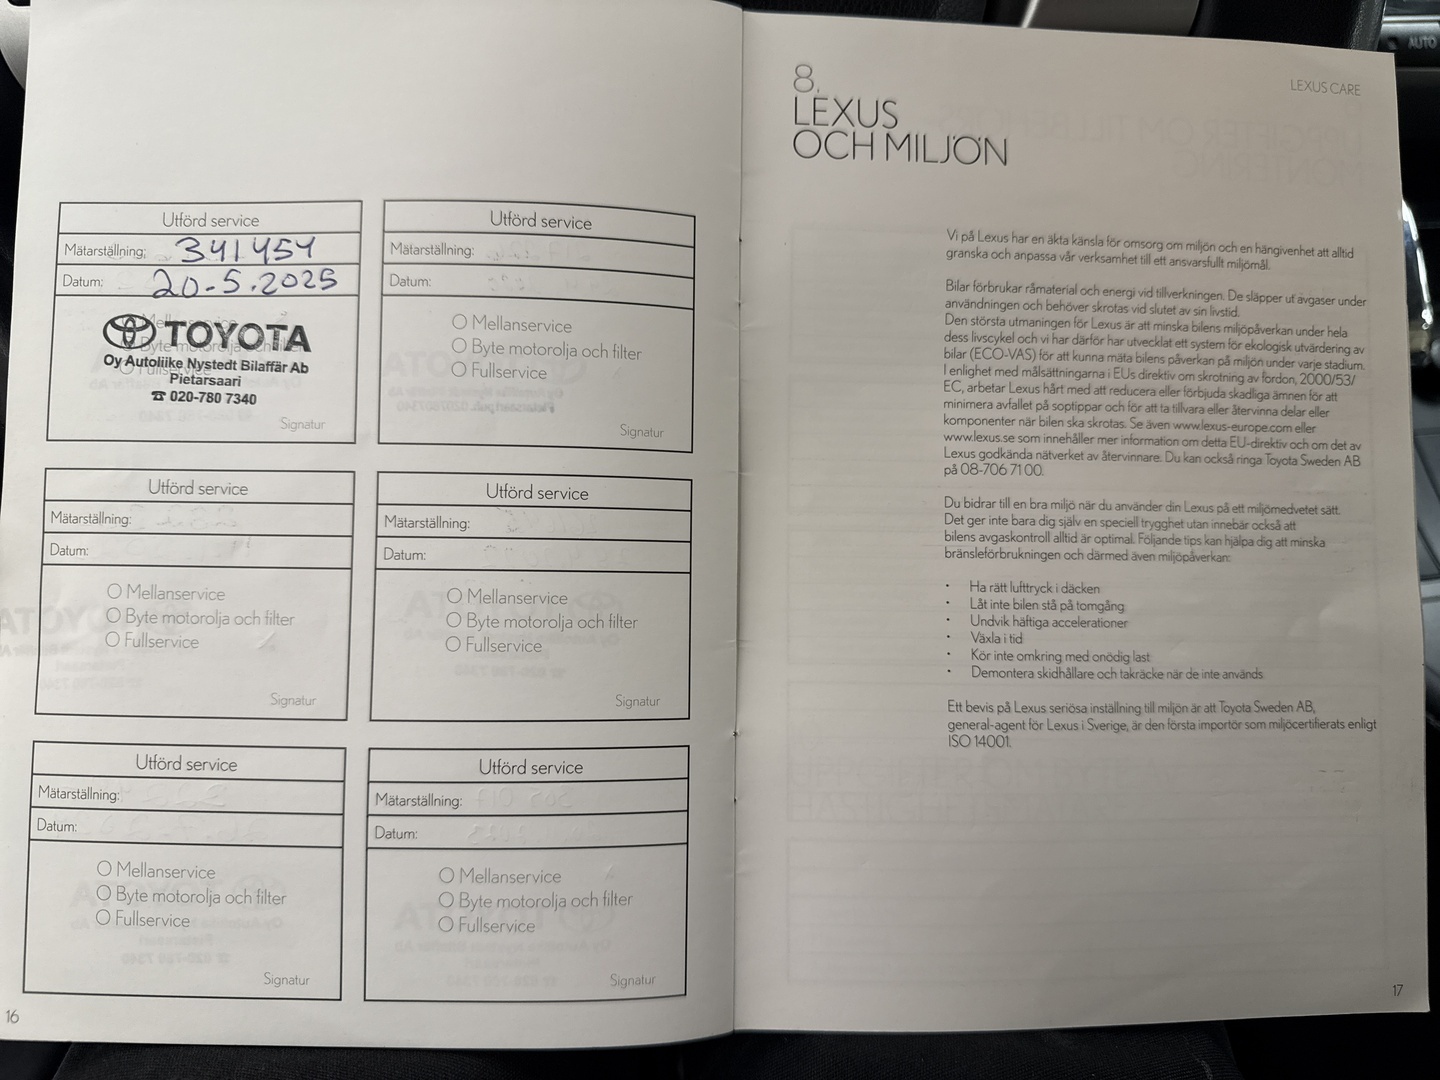 Utförd service
Mätarställning: 341454
Datum: 20-5.2025
TOYOTA
Oy Autoliike Nystedt Bilaffär Ab
Pietarsaari
☎ 020-780 7340
Signatur
Utförd service
Mätarställning:
Datum:
O Mellanservice
O Byte motorolja och filter
O Fullservice
Signatur
Utförd service
Mätarställning:
Datum:
O Mellanservice
O Byte motorolja och filter
O Fullservice
Signatur
Utförd service
Mätarställning:
Datum:
O Mellanservice
O Byte motorolja och filter
O Fullservice
Signatur
Utförd service
Mätarställning:
Datum:
O Mellanservice
O Byte motorolja och filter
O Fullservice
Signatur
Utförd service
Mätarställning:
Datum:
O Mellanservice
O Byte motorolja och filter
O Fullservice
Signatur
16
LEXUS CARE
8.
LEXUS
OCH MILJÖN
Vi på Lexus har en äkta känsla för omsorg om miljön och en hängivenhet att alltid
granska och anpassa vår verksamhet till ett ansvarsfullt miljömål.
Bilar förbrukar råmaterial och energi vid tillverkningen. De släpper ut avgaser under
användningen och behöver skrotas vid slutet av sin livstid.
Den största utmaningen för Lexus är att minska bilens miljöpåverkan under hela
dess livscykel och vi har därför har utvecklat ett system för ekologisk utvärdering av
bilar (ECO-VAS) för att kunna mäta bilens påverkan på miljön under varje stadium.
I enlighet med målsättningarna i EUs direktiv om skrotning av fordon, 2000/53/
EC, arbetar Lexus hårt med att reducera eller förbjuda skadliga ämnen för att
minimera avfallet på soptippar och för att ta tillvara eller återvinna delar eller
komponenter när bilen ska skrotas. Se även www.lexus-europe.com eller
www.lexus.se som innehåller mer information om detta EU-direktiv och om det av
Lexus godkända nätverket av återvinnare. Du kan också ringa Toyota Sweden AB
på 08-706 71 00.
Du bidrar till en bra miljö när du använder din Lexus på ett miljömedvetet sätt.
Det ger inte bara dig själv en speciell trygghet utan innebär också att
bilens avgaskontroll alltid är optimal. Följande tips kan hjälpa dig att minska
bränsleförbrukningen och därmed även miljöpåverkan:
• Ha rätt lufttryck i däcken
• Låt inte bilen stå på tomgång
• Undvik häftiga accelerationer
• Växla i tid
• Kör inte omkring med onödig last
• Demontera skidhållare och takräcke när de inte används
Ett bevis på Lexus seriösa inställning till miljön är att Toyota Sweden AB,
general-agent för Lexus i Sverige, är den första importör som miljöcertifierats enligt
ISO 14001.
17
AUTO